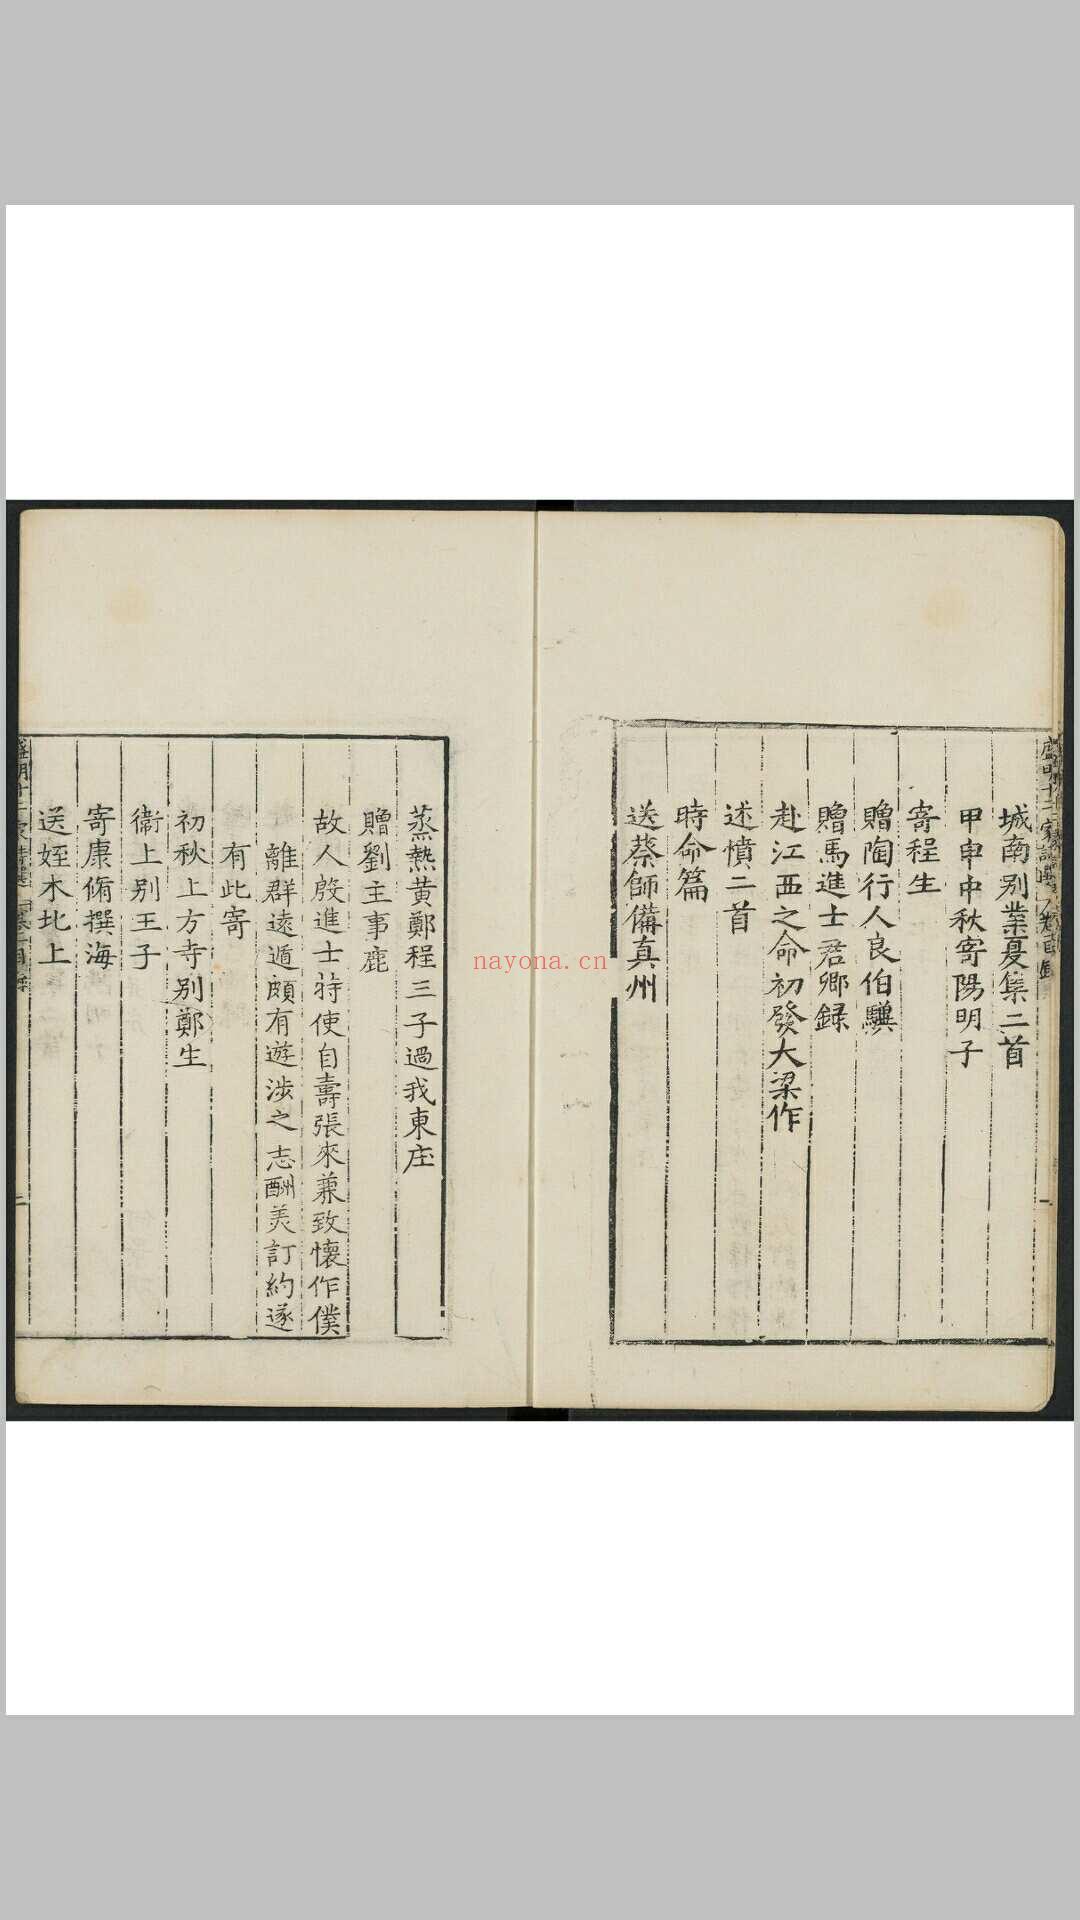 城南别業夏集二首
甲申中秋寄陽明子
寄程生
贈陶行人良伯驥
贈馬進士君卿録
赴江西之命初發大梁作
述憤二首
時命篇
送蔡師備真州
蒸熱黄鄭程三子過我東庄
贈劉主事鹿
故人殷進士特使自壽張來兼致懷作僕
離群遠遁頗有遊涉之志酬羙訂約遂
有此寄
初秋上方寺别鄭生
衛上别王子
寄康脩撰海
送姪木北上
二
nayona.cn